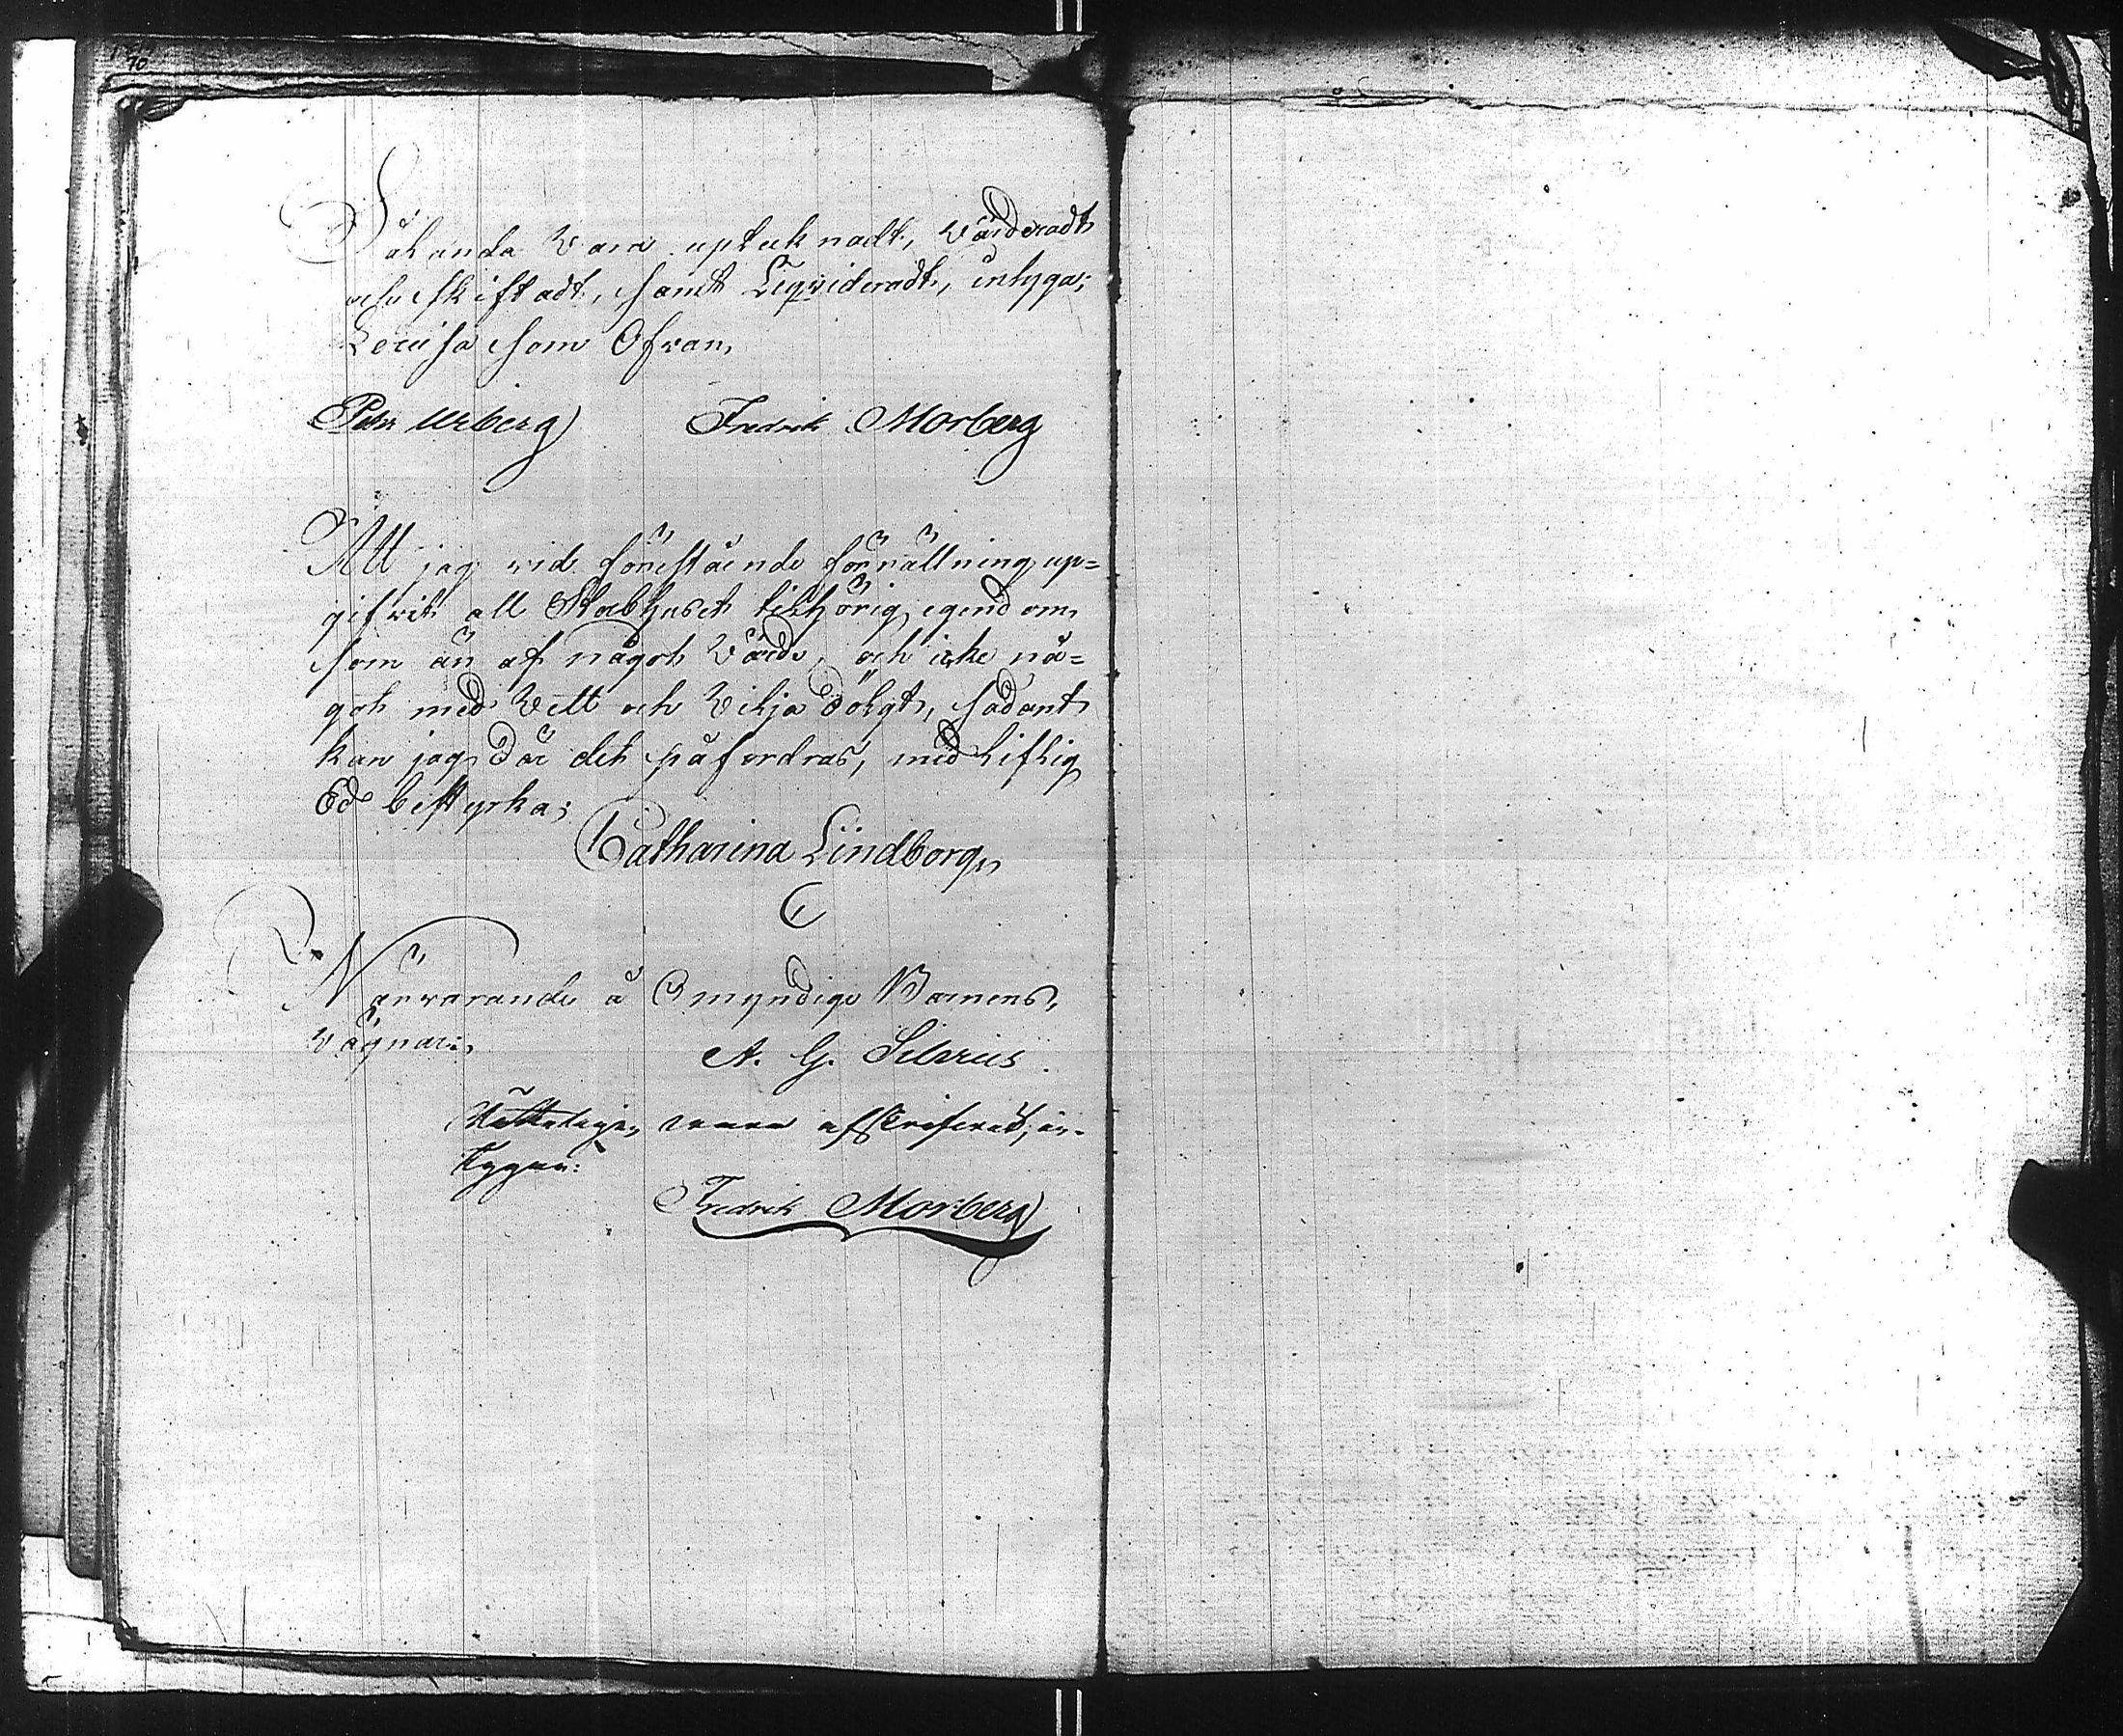 70
Såkunda Vara upteknadt, Värderadt
och skiftadt, samt Leqvideradt, intyga;
Lovisa som Ofvan,
Petr Urberg Fredrik Morberg
Att jag vid förestående förrättning up=
gifvit all Stärbhuset tilhörig egendom
som är af något Värde, och icke nå=
got med Vett och Vilja dölgt, sådant
kan jag Då det påfordras, med Liflig
Ed bestyrka;
Catharina Lindborg,
Närvarande å Omyndige Barnens,
Vägnar;
A. G.
Rätteligen vara afskrifvit, in-
tygar:
Fredrik Morberg